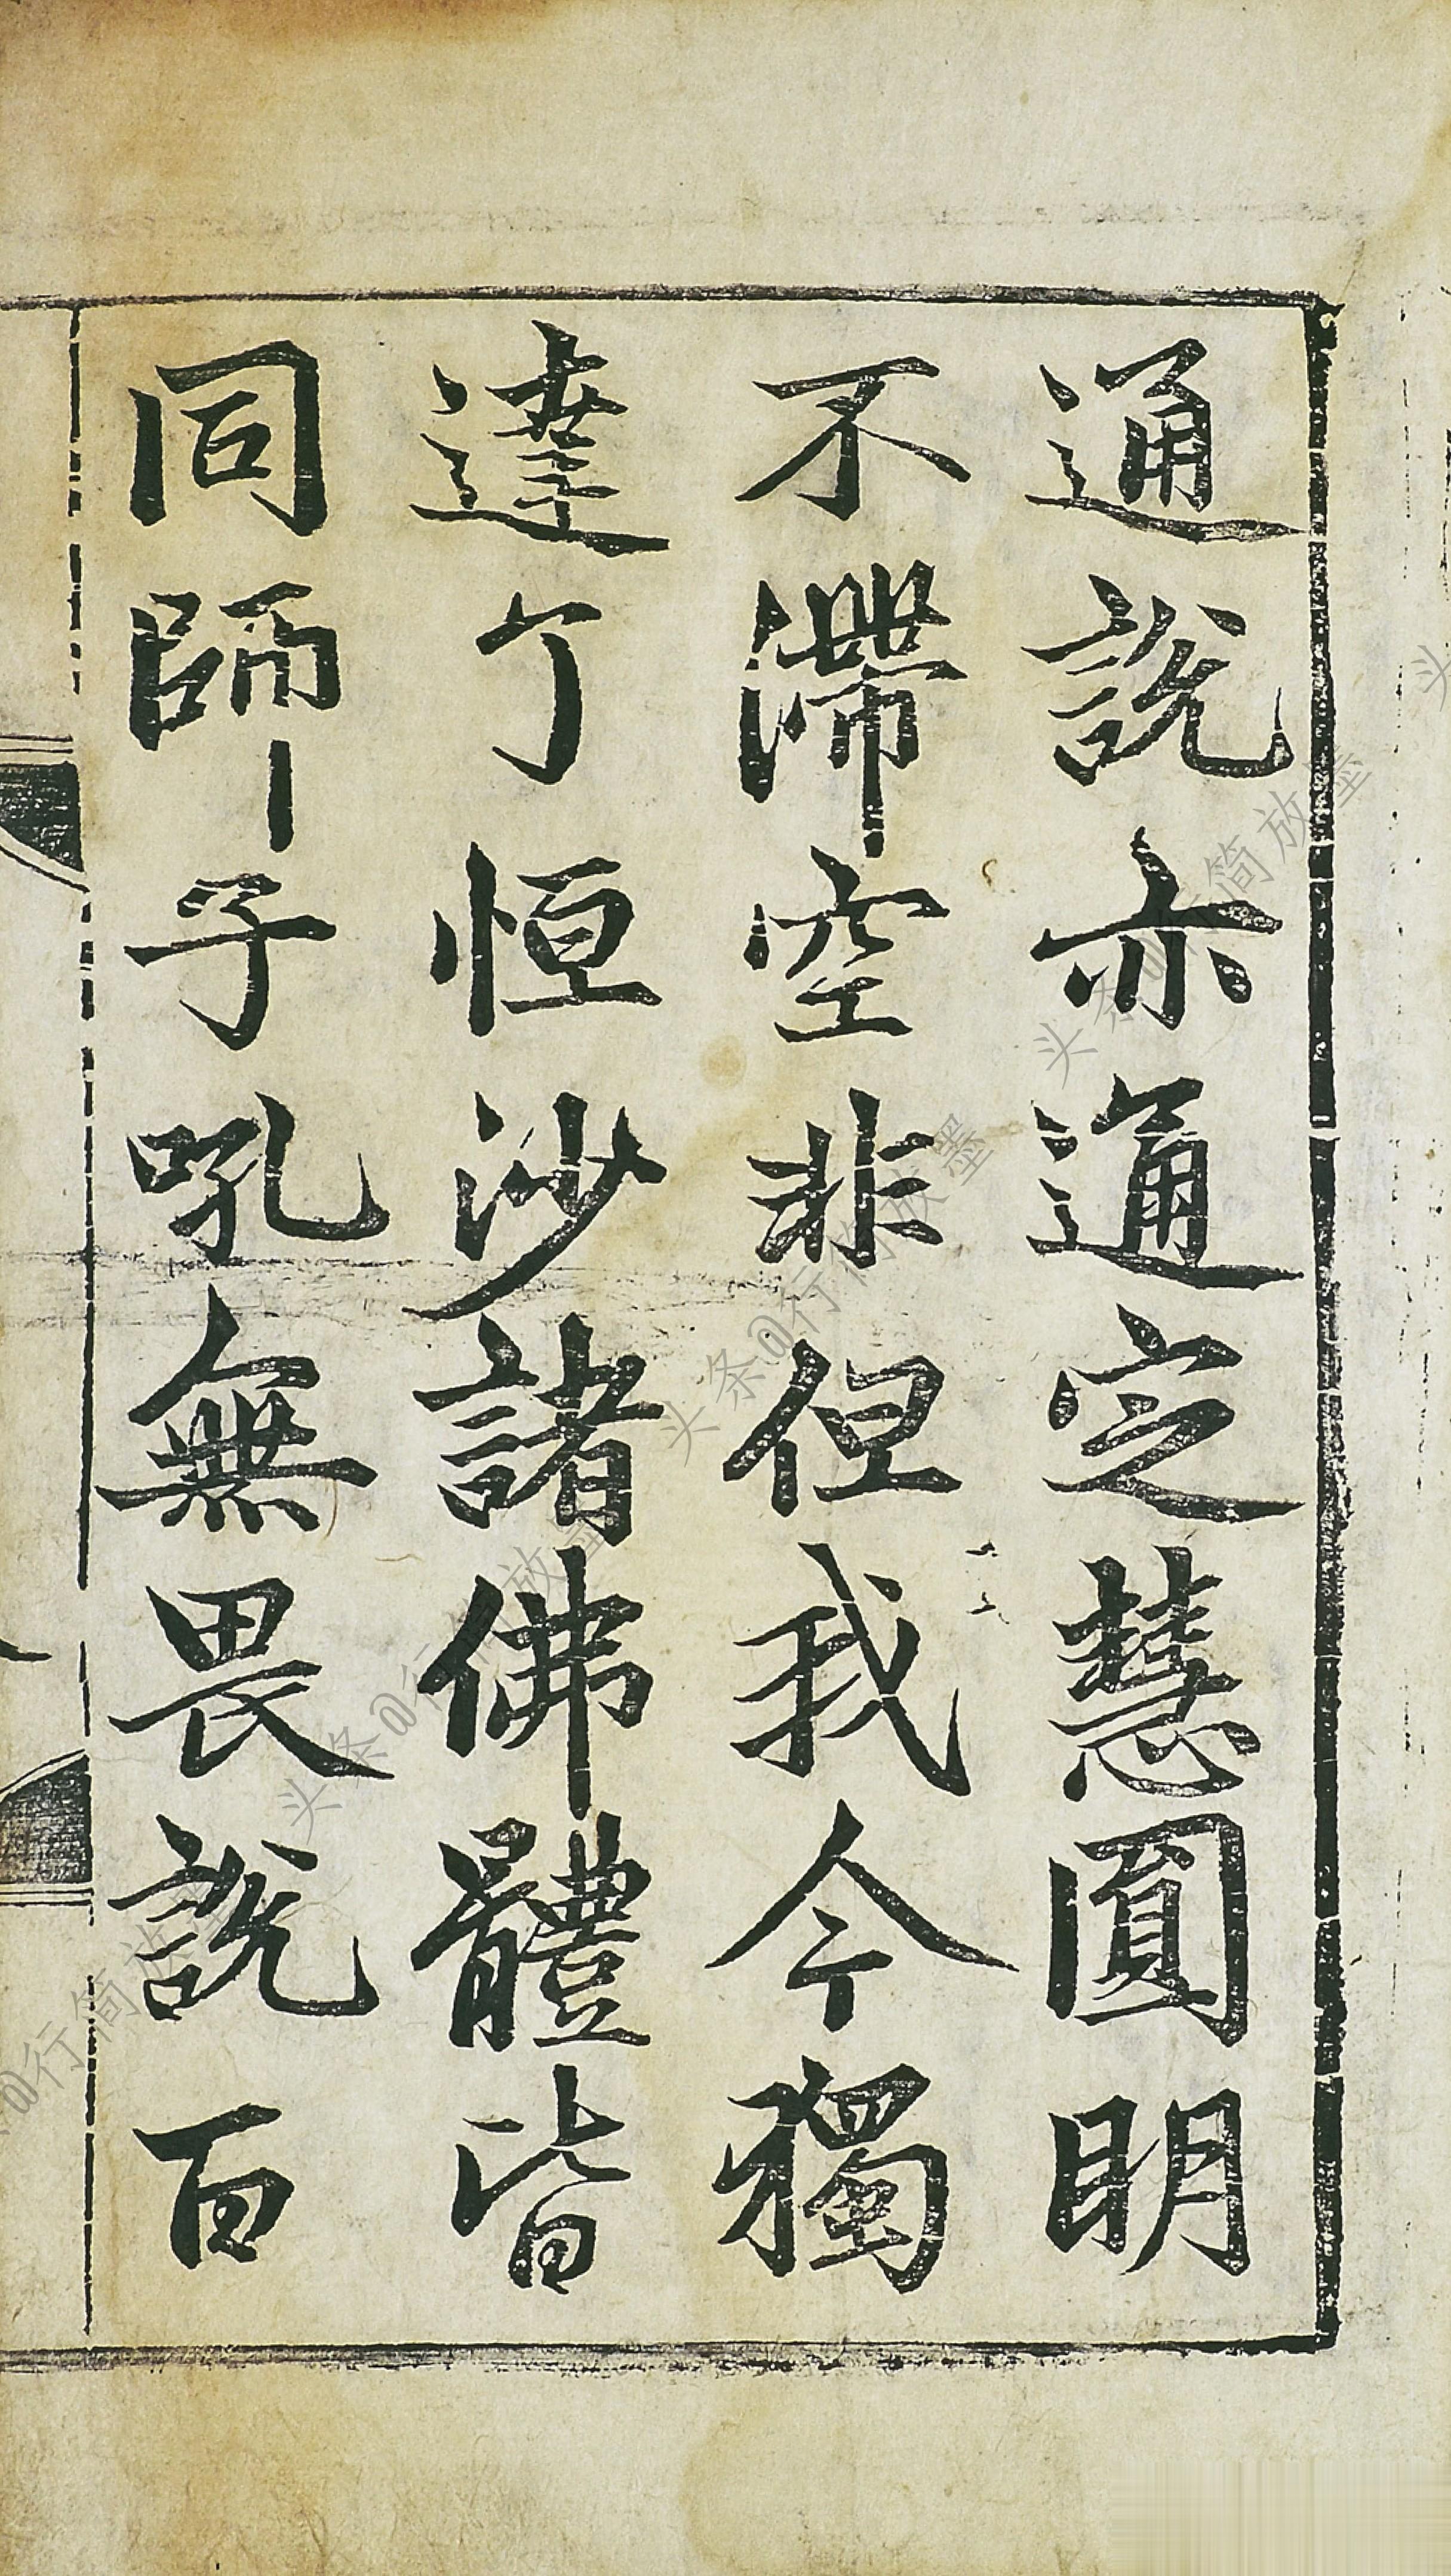 通說亦通定慧圓明
不滯空非但我今獨
達了恒沙諸佛體皆
同師子吼無畏說百
头条@行简放墨
头条@行简放墨
头条@行简放墨
@行简放墨
头